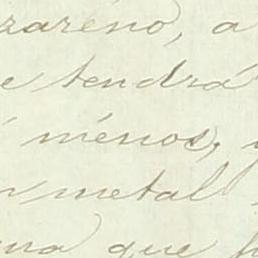 zareno, a
e tendrá
ménos,
n metal
una que